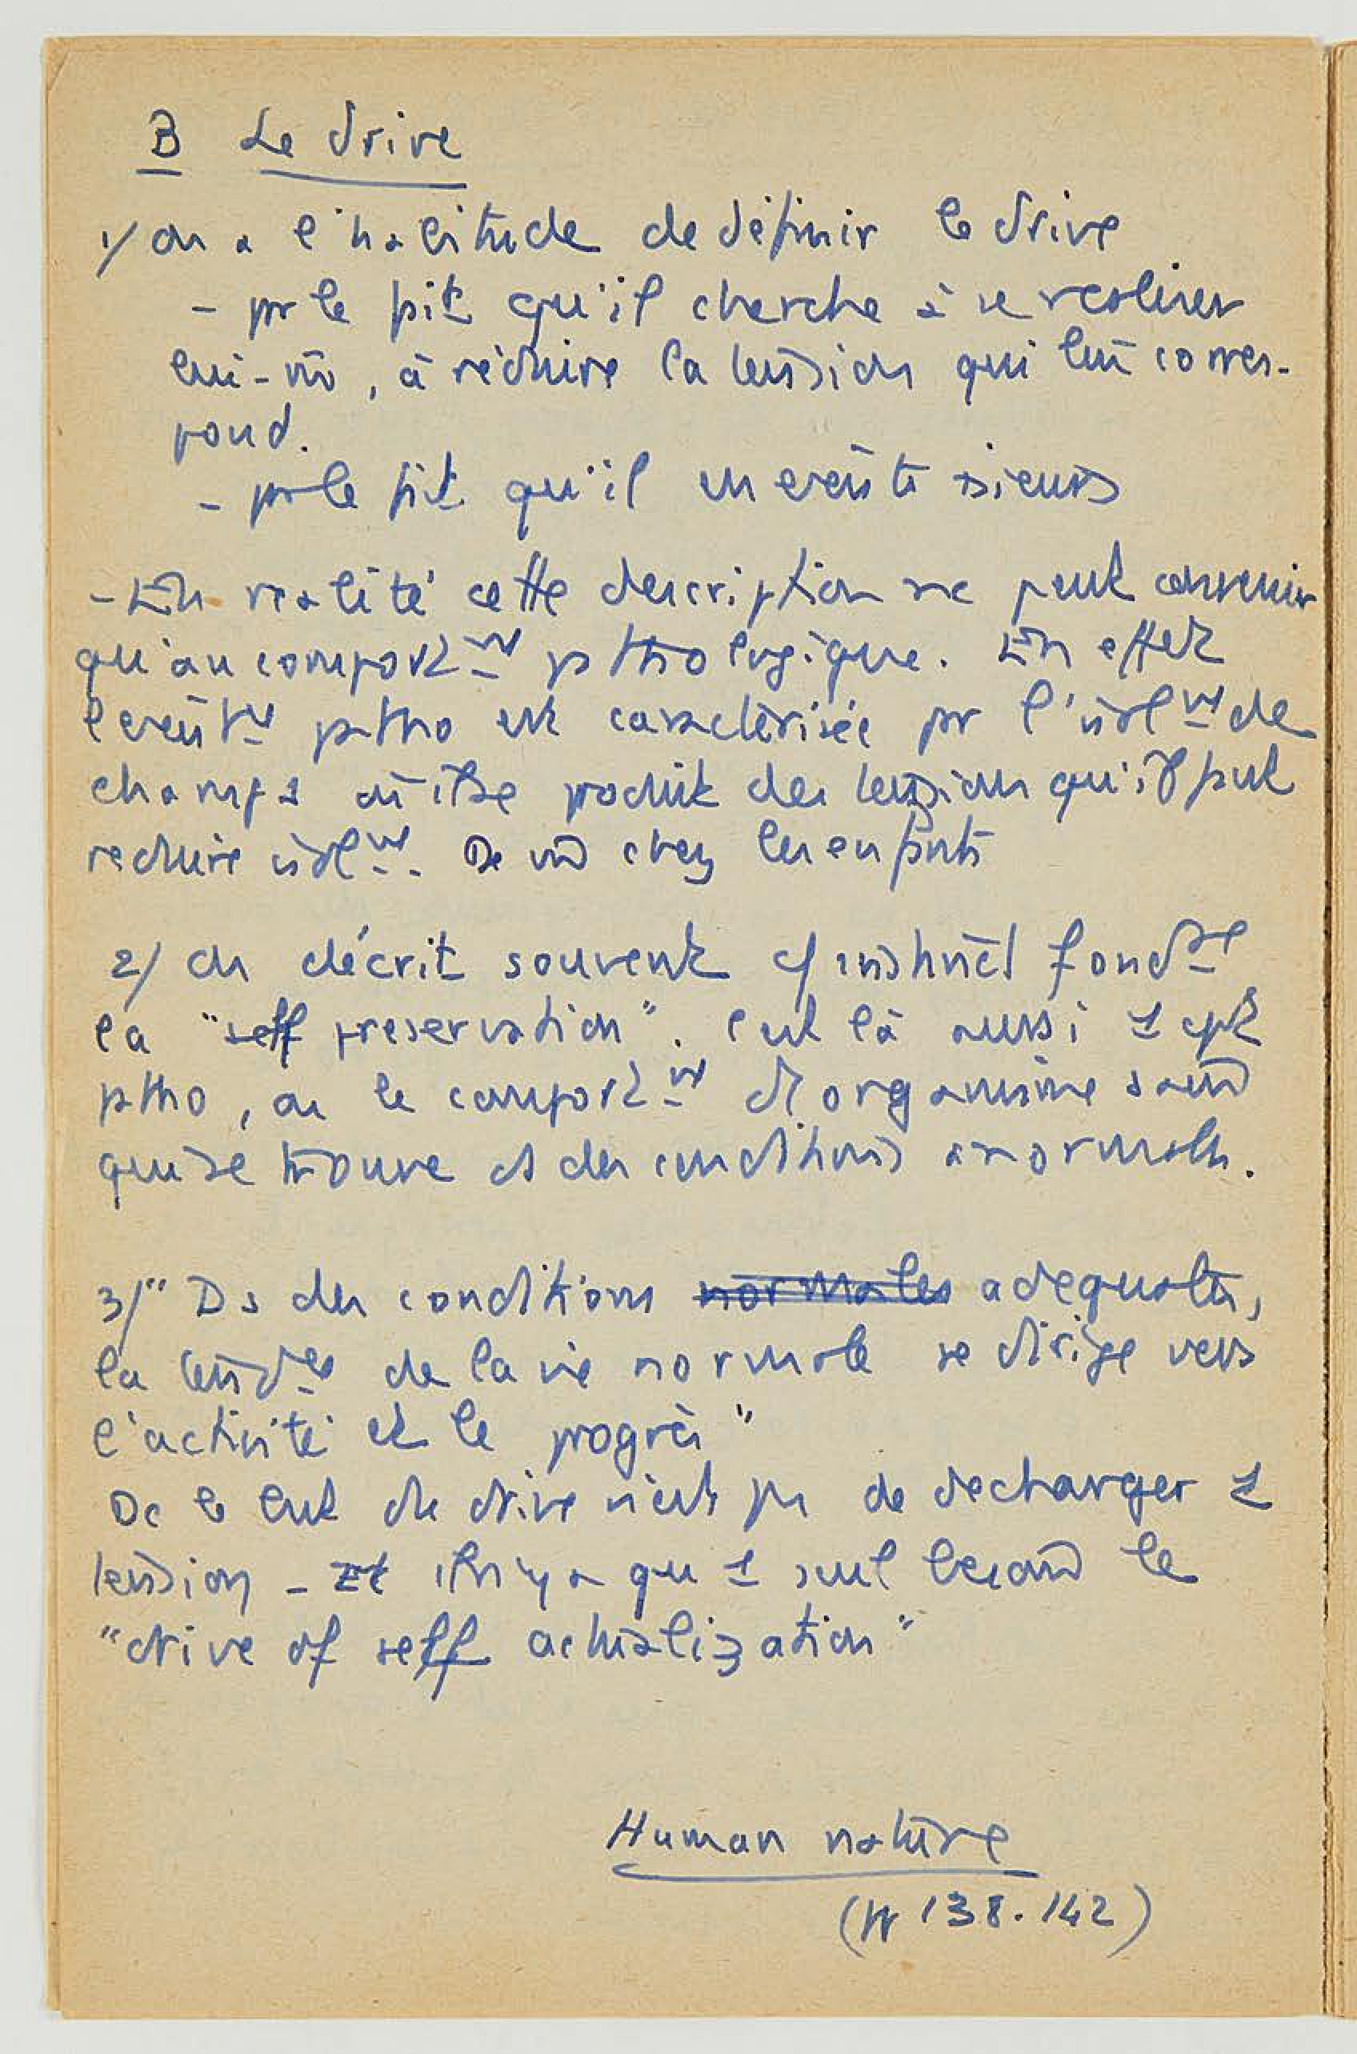 B Le drive
1/ on a l'habitude de définir le drive
- par le fait qu'il cherche à se realiser
lui-m̄, à réduire la tension qui lui corres-
pond.
- par le fait qu'il en existe
- En realité cette description ne peut convenir
qu'au comportnt pthologique. En effet
ptho est caractérisée par l'isolnt de
champs où il se produit des tensions qu'il faut
reduire isolnt. De m̄ chez les enfants
2/ on décrit souvent c/ instinct fondal
la "self preservation". C'est là aussi 1 cpt
ptho, ou le comportnt d'1 organisme sain
qui se trouve ds des conditions anormales.
3/ "Ds des conditions normales adequates,
la tendce de la vie normale se dirige vers
l'activité et le progrès"
Dc le but du drive n'est pas de decharger 1
tension - Et il n'y a qu 1 seul besoin le
"drive of self actualization"
Human nature
(pp 138.142)